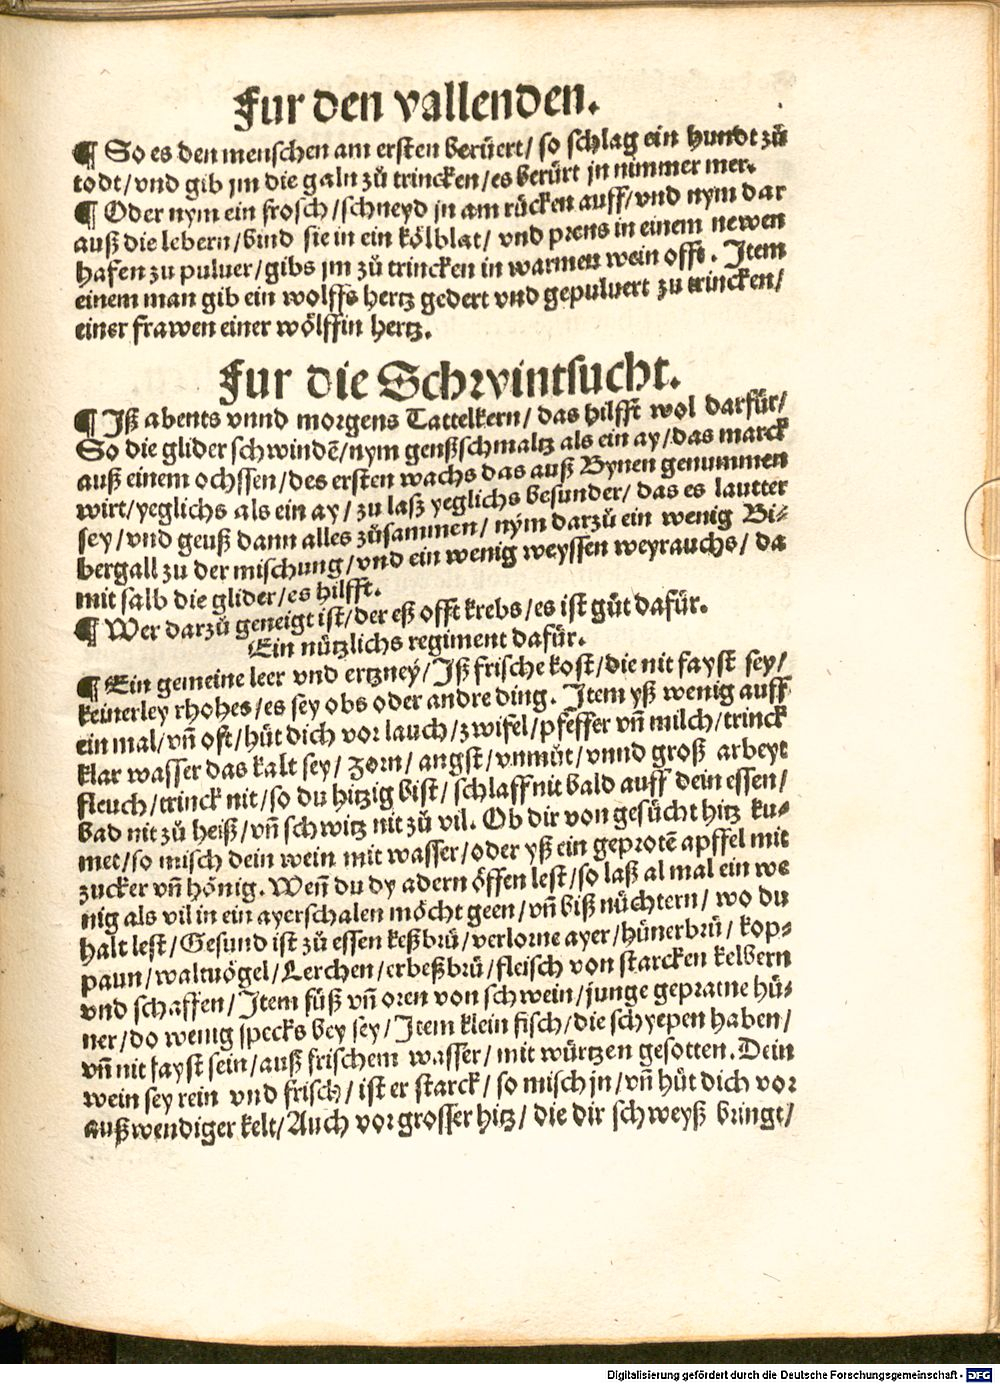 Fur den vallenden.
¶ So es den menschen am ersten berüert/ so schlag ein hundt zů
todt/ vnd gib jm die galn zů trincken/ es berürt jn nimmer mer.
¶ Oder nym ein frosch/ schneyd jn am rücken auff/ vnd nym dar
auß die lebern/ bind sie in ein kölblat/ vnd prens in einem newen
hafen zu puluer/ gibs jm zů trincken in warmen wein offt. Item
einem man gib ein wolffs hertz gedert vnd gepuluert zu trincken/
einer frawen einer wölffin hertz.
Fur die Schwintsucht.
¶ Iß abents vnnd morgens Tattelkern/ das hilfft wol darfür/
So die glider schwindē/ nym genßschmaltz als ein ay/ das marck
auß einem ochssen/ des ersten wachs das auß Bynen genummen
wirt/ yeglichs als ein ay/ zu laß yeglichs besunder/ das es lautter
sey/ vnd geuß dann alles zůsammen/ nym darzů ein wenig Bi⸗
bergall zu der mischung/ vnd ein wenig weyssen weyrauchs/ da
mit salb die glider/ es hilfft.
¶ Wer darzů geneigt ist/ der eß offt krebs/ es ist gůt dafür.
Ein nützlichs regiment dafür.
¶ Ein gemeine leer vnd ertzney/ Iß frische kost/ die nit fayst sey/
keinerley rhohes/ es sey obs oder andre ding. Item yß wenig auff
ein mal/ vn̄ oft/ hüt dich vor lauch/ zwifel/ pfeffer vn̄ milch/ trinck
klar wasser das kalt sey/ zorn/ angst/ vnmůt/ vnnd groß arbeyt
fleuch/ trinck nit/ so du hitzig bist/ schlaff nit bald auff dein essen/
bad nit zů heiß/ vn̄ schwitz nit zů vil. Ob dir von gesücht hitz ku⸗
met/ so misch dein wein mit wasser/ oder yß ein geprotē apffel mit
zucker vn̄ hönig. Wen̄ du dy adern öffen lest/ so laß al mal ein we
nig als vil in ein ayerschalen möcht geen/ vn̄ biß nüchtern/ wo du
halt lest/ Gesund ist zů essen keßbrü/ verlorne ayer/ hünerbrü/ kop⸗
paun/ waltuögel/ Lerchen/ erbeßbrü/ fleisch von starcken kelbern
vnd schaffen/ Item füß vn̄ oren von schwein/ junge gepratne hü⸗
ner/ do wenig specks bey sey/ Item klein fisch/ die schyepen haben/
vn̄ nit fayst sein/ auß frischem wasser/ mit würtzen gesotten. Dein
wein sey rein vnd frisch/ ist er starck/ so misch jn/ vn̄ hüt dich vor
außwendiger kelt/ Auch vor grosser hitz/ die dir schweyß bringt/
Digitalisierung gefördert durch die Deutsche Forschungsgemeinschaft - DFG